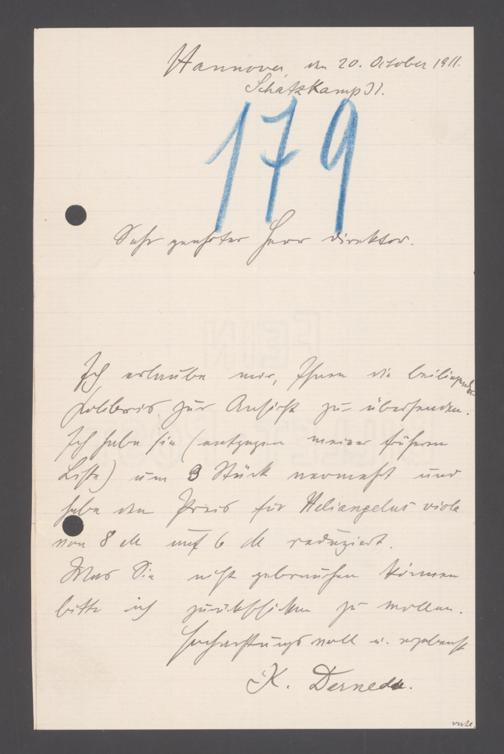 Hannover, den 20. October 1911.
Schatzkamp 31.
179
Sehr geehrter Herr Direktor.
Ich erlaube mir, Ihnen die beiliegenden
Kolibris zur Ansicht zu übersenden.
Ich habe sie (entgegen meiner früheren
Liste) um 3 Stück vermehrt und
habe den Preis für Heliangelus viola
von 8 M auf 6 M reduziert.
Was Sie nicht gebrauchen können
bitte ich zurückschicken zu wollen.
Hochachtungsvoll u. ergebenst
K. Dernedde.